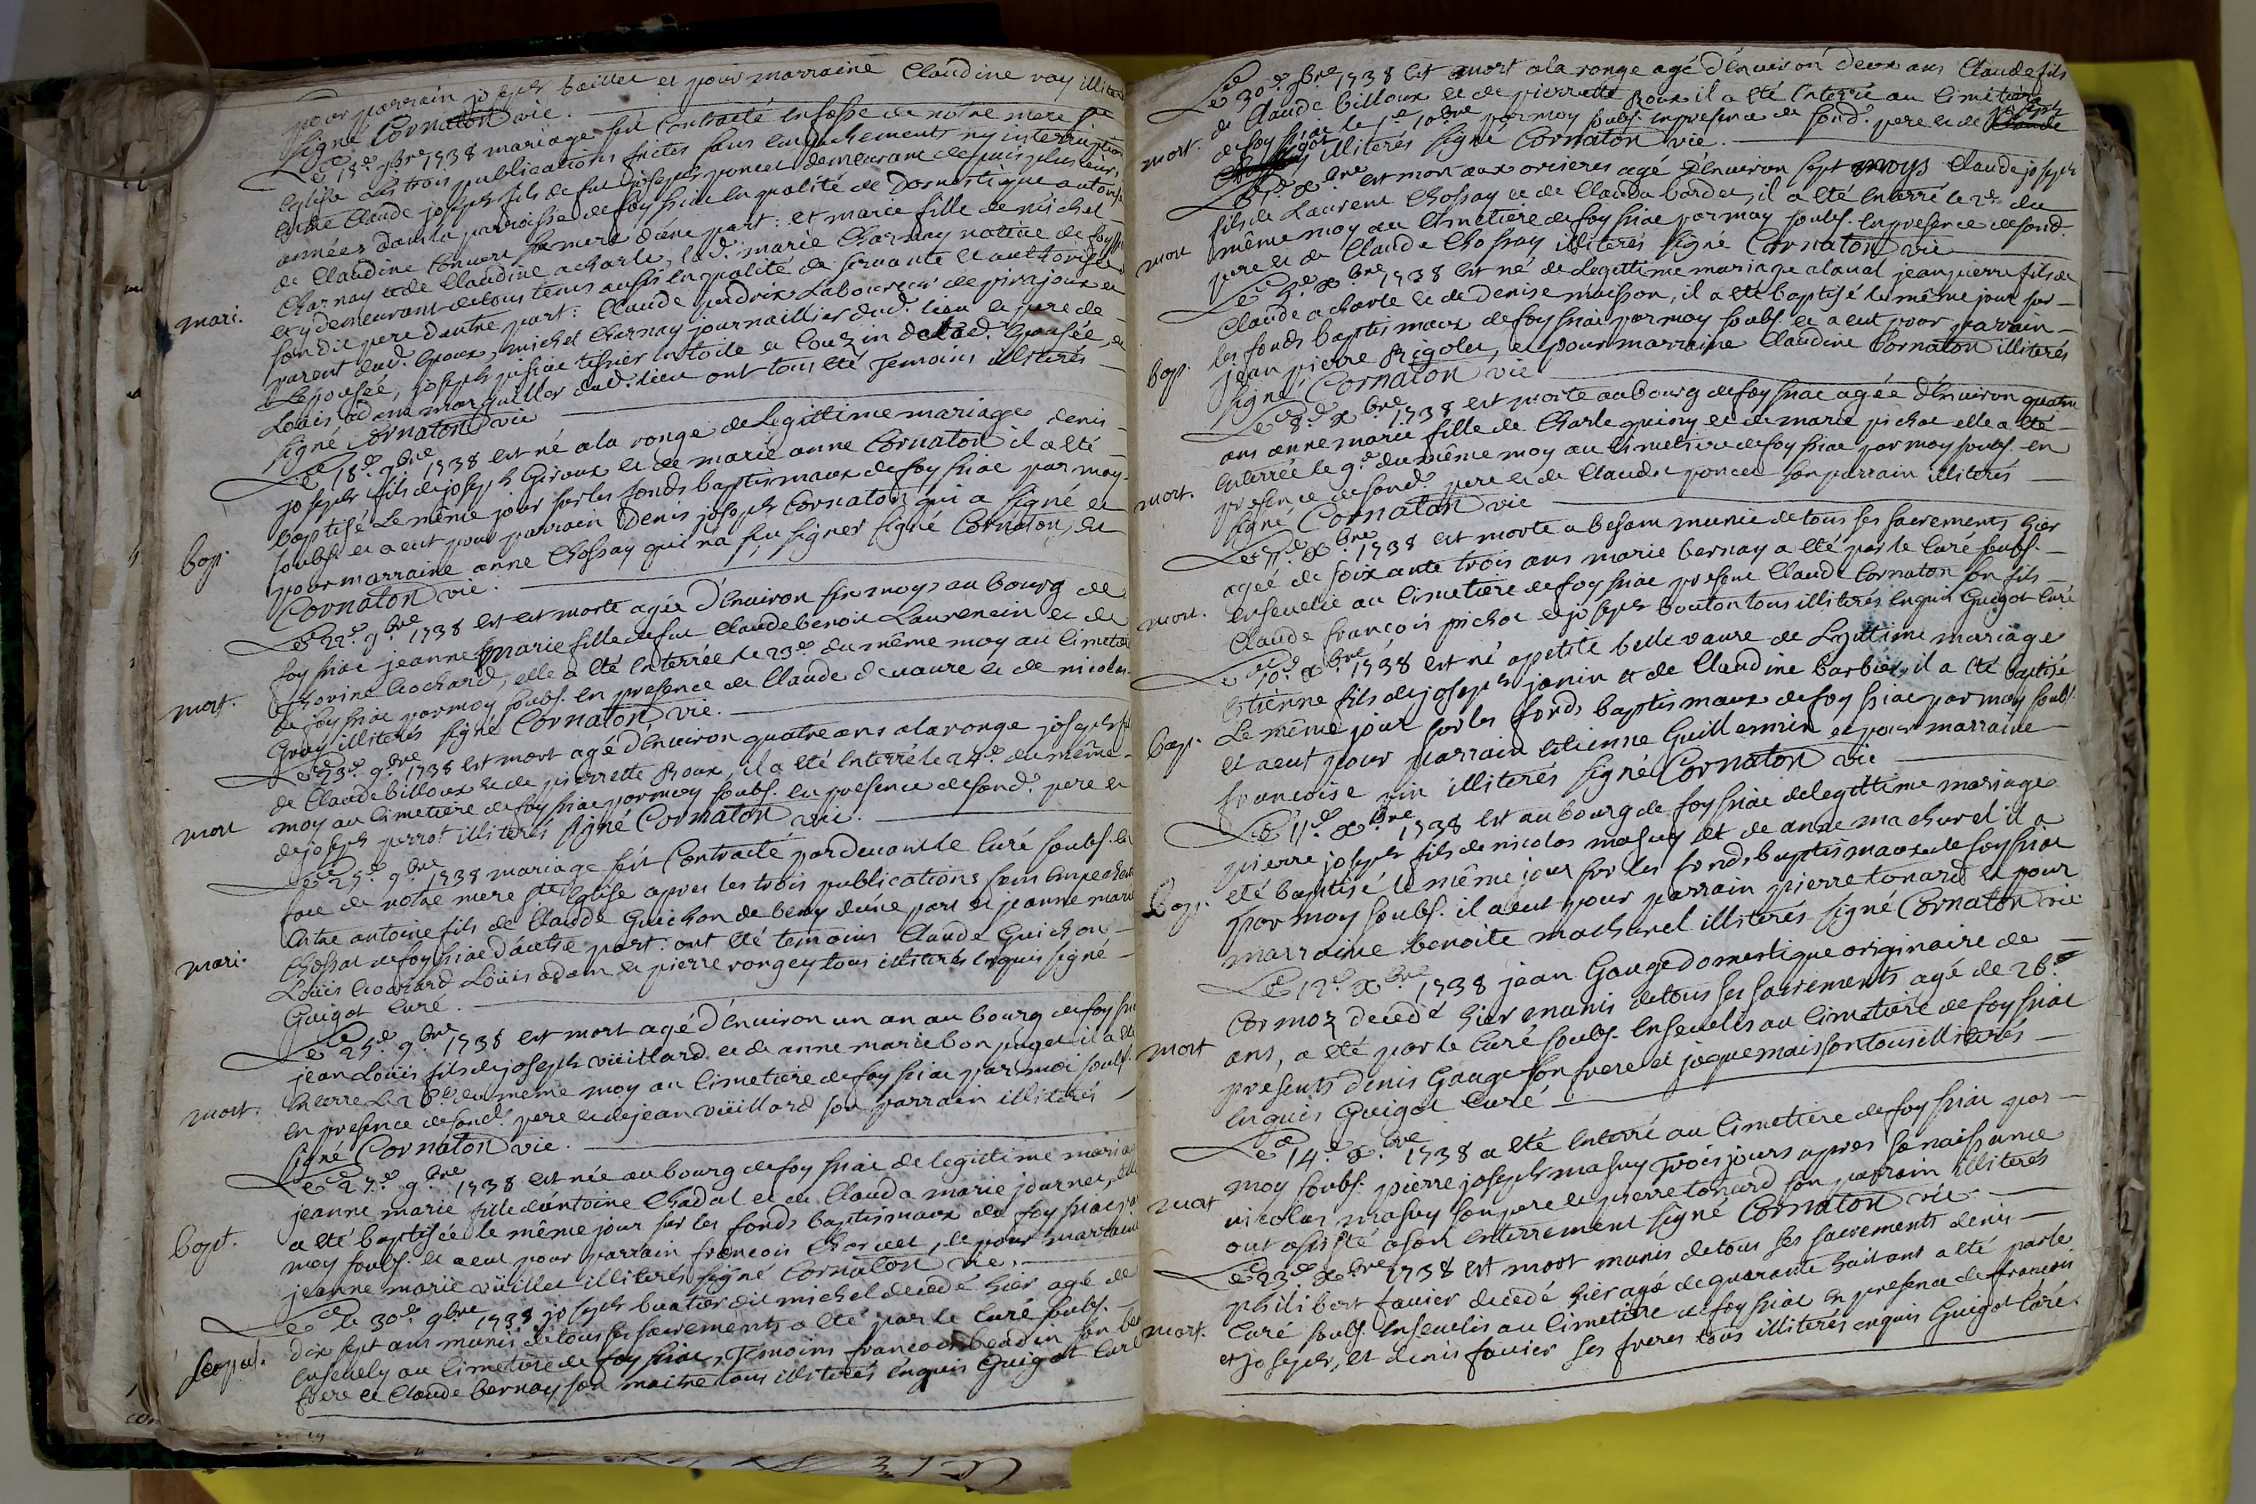 pour parrain joseph baillet et pour marraine Claudine ray illiterés
signé Cornaton vic.
Le 18.e 9bre 1738 mariage fut Contracté en face de notre mere ste
eglise les trois publications faictes sans empechements ny interruption
entre Claude joseph fils de fut joseph poncet demeurant depuis plusieurs
années dans la parroisse de foyssiac en qualité de Domestique autorisé
de Claudine Convert sa mere d'une part: et marie fille de michel
Charnay et de Claudine acharle, lad. marie Charnay native de foyssiac
et y demeurant de tous tems aussi en qualité de servante et authorisée
mari.
son dit pere d'autre part: Claude perdrix Laboureur de pirajoux et
parent dud. Epoux, michel Charnay journaillier dud. lieu le pere de
L'epousée, joseph tissier en toile et Couzin de lad. Epousée, et
Louis adam marguillier dud. lieu ont tous eté Temoins illiterés
signé Cornaton vic
Le 18.e 9bre 1738 est né a la ronge de Legittime mariage denis
joseph fils de joseph Giroux et de marie anne Cornaton il a eté
baptisé Le même jour sur les fonds baptismaux de foyssiac par moy
soubs. et a eut pour parrain Denis joseph Cornaton qui a signé et
bap.
pour marraine anne Chossay qui na sçu signer signé Cornaton, et
Cornaton vic.
Le 22.e 9bre 1738 est morte agée d'Environ six moys au bourg de
foyssiac jeanne marie fille de fut Claude benoit Laurencin et de
Cochard, elle a eté Enterrée le 23.e du même moy au Cimetiere
mort.
de foyssiac par moy soubs. en presence de Claude devaure et de nicolas
Gray illiterés signé Cornaton vic.
Le 23.e 9bre 1738 est mort agé d'Environ quatre ans a la ronge joseph fils
de Claude billoux et de pierrette Roux, il a eté Enterré le 24.e du même
moy au Cimetiere de foyssiac par moy soubs. en presence de sond. pere et
mort
de joseph perrot illiterés signé Cornaton vic.
Le 25.e 9bre 1738 mariage s'est Contracté pardevant le Curé soubs. en
face de notre mere ste Eglise apres les trois publications sans empechement
Entre antoine fils de Claude Guichon de beny d'une part et jeanne marie
mari.
Chossat de foyssiac d'autre part: ont eté temoins Claude Guichon
Loüis Cochard Loüis adam et pierre rongey tous illiterés enquis signé
Guigot Curé.
Le 25.e 9bre 1738 est mort agé d'Environ un an au bourg de foyssiac
jean Loüis fils de joseph vüillard et de anne marie bon puget il a eté
mort.
Enterré Le 26.e du meme moy au Cimetiere de foyssiac par moi soubs.
en presence de sond. pere et de jean vüillard son parrain illiterés
signé Cornaton vic.
Le 27.e 9bre 1738 est née au bourg de foyssiac de legittime mariage
jeanne marie fille d'antoine Chadal et de Clauda marie journet, elle
bapt.
a eté baptisée le même jour sur les fonds baptismaux de foyssiac par
moy soubs. et a eut pour parrain francois Charvet, et pour marraine
jeanne marie vüillet illiterés signé Cornaton vic.
Le 30.e 9bre 1738 joseph buatier dit michel decedé hier agé de
dix sept ans munis de tous ses sacrements a eté par le Curé soubs.
Ensevely au Cimetiere de foyssiac, Temoins francois beau
frere et Claude bernay son maitre tous illiterés enquis Guigot Curé
Le 30.e 9bre 1738 est mort a la ronge agé d'Environ deux ans Claude fils
de Claude billoux et de pierrette Roux il a eté Enterré au Cimetiere
mort.
de foyssiac le 1.er 10bre par moy soubs. en presence de sond. pere et de joseph
illiterés signé Cornaton vic.
Le 1.er xbre est mort aux orcieres agé d'Environ sept moys Claude joseph
fils de Laurent Chossay et de Clauda bardet, il a eté Enterré le 2.e du
même moy au Cimetiere de foyssiac par moy soubs. en presence de sond.
mort
pere et de Claude Chossay illiterés signé Cornaton vic
Le 5.e xbre 1738 est né de Legittime mariage a laval jean pierre fils de
Claude acharle et de Denise maisson, il a eté baptisé le même jour sur
les fonds baptismaux de foyssiac par moy soubs. et a eut pour parrain
bap.
jean pierre Rigolet, et pour marraine Claudine Cornaton illiterés
signé Cornaton vic
Le 8.e xbre 1738 est morte au bourg de foyssiac agée d'Environ quatre
ans anne marie fille de Charle quiny et de marie pichot elle a eté
Enterrée le 9.e du même moy au Cimetiere de foyssiac par moy soubs. en
mort.
presence de sond. pere et de Claude poncet son parrain illiterés
signé Cornaton vic
Le 11.e xbre 1738 est morte a besam munie de tous ses sacrements hier
agée de soixante trois ans marie bernay a eté par le Curé soubs.
mort.
Ensevelie au Cimetiere de foyssiac present Claude Cornaton son fils
Claude françois pichot et joseph bouton tous illiterés enquis Guigot Curé
Le 10.e xbre 1738 est né a petite belle vaure de Legittime mariage
Etienne fils de joseph janin et de Claudine barbier, il a eté baptisé
Le même jour sur les fonds baptismaux de foyssiac par moy soubs.
bap.
et a eut pour parrain Etienne Guillermin et pour marraine
francoise illiterés signé Cornaton vic
Le 11.e xbre 1738 est au bourg de foyssiac de legittime mariage
pierre joseph fils de nicolas masuy et de anne machurel il a
eté baptisé le même jour sur les fonds baptismaux de foyssiac
bap.
par moy soubs. il a eut pour parrain pierre tonard et pour
marraine benoite machurel illiterés signé Cornaton vic
Le 12.e xbre 1738 jean Gauge domestique originaire de
Cormoz decedé hier munis de tous ses sacrements agé de 26.
mort
ans, a eté par le Curé soubs. Ensevelis au Cimetiere de foyssiac
présents denis Gauge son frere et jaque maisson tous illiterés
enquis Guigot Curé
Le 14.e xbre 1738 a eté Enterré au Cimetiere de foyssiac par
moy soubs. pierre joseph masuy trois jours apres sa naissance
mort
nicolas masuy son pere et pierre tonard son parrain illiterés
ont assisté a son enterrement signé Cornaton vic.
Le 23.e xbre 1738 est mort munis de tous ses sacrements denis
philibert favier decedé hier agé de quarante huit ans a eté par le
mort.
Curé soubs. Ensevelis au Cimetiere de foyssiac en presence de francois
et joseph, et denis favier ses freres tous illiterés enquis Guigot Curé.